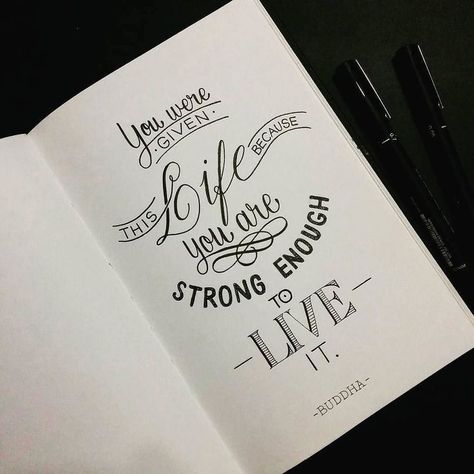 You were
GIVEN
THIS Life BECAUSE
you are
STRONG ENOUGH
TO
-LIVE-
IT.
-BUDDHA-